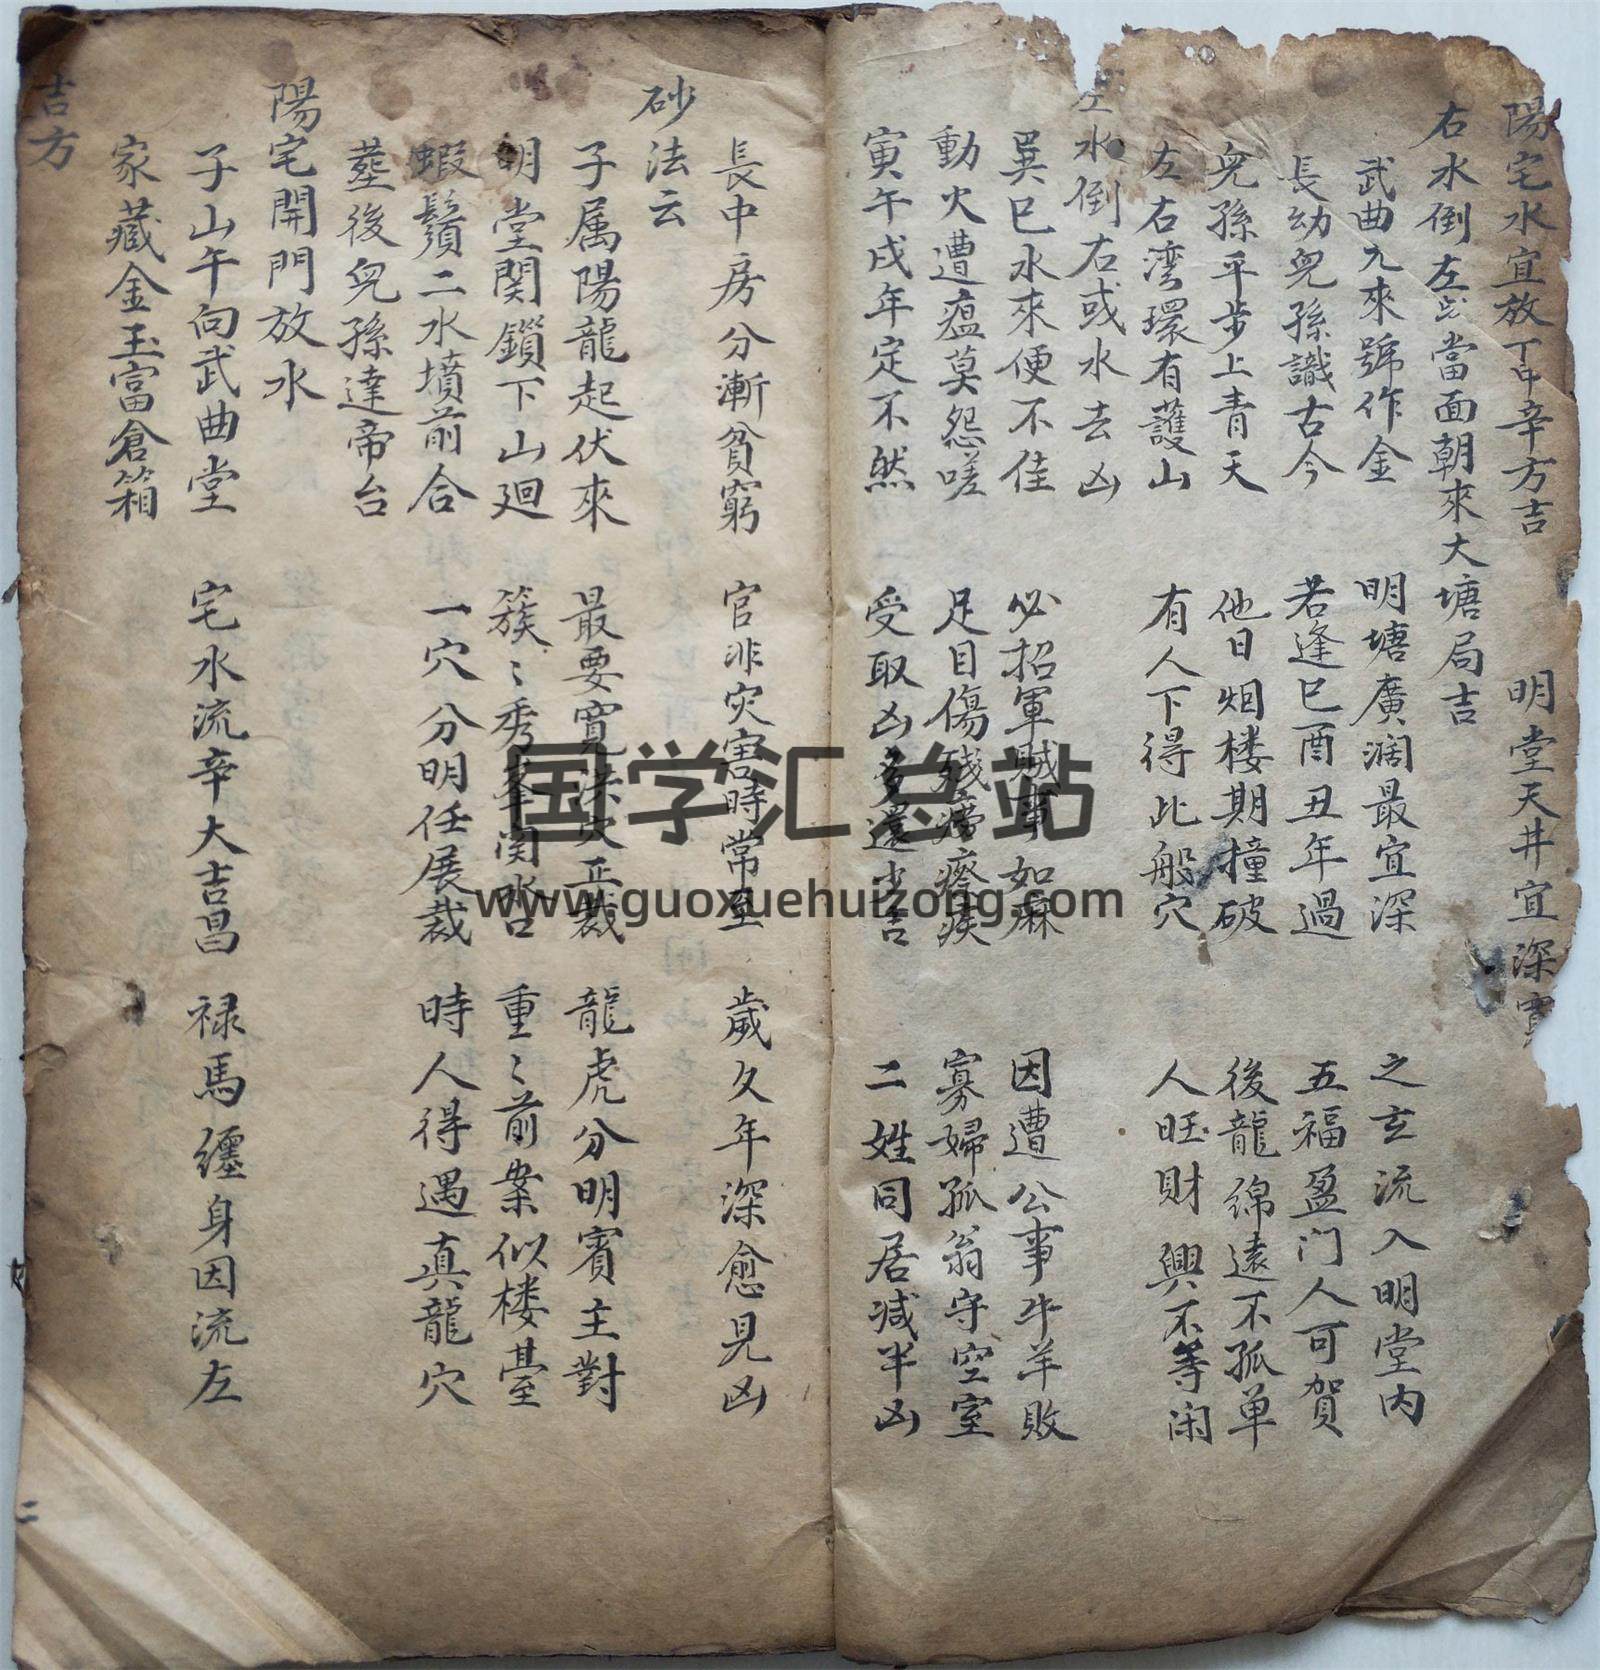 陽宅水宜放丁 辛方吉 明堂天井宜深
右水倒左 當面朝來大塘局吉
武曲九來號作金 明塘廣濶最宜深 之玄流入明堂内
長幼兒孫識古今 若逢巳酉丑年過 五福盈门人可賀
兒孫平步上青天 他日烟楼期撞破 後龍綿遠不孤单
左右湾環有護山 有人下得此般穴 人旺財興不等闲
左水倒右或水去凶
巽巳水來便不佳 必招軍賊事如麻 因遭公事牛羊敗
動火遭瘟莫怨嗟 足目傷残 疾 寡婦孤翁守空室
寅午戌年定不然 受取凶多還少吉 二姓同居减半凶
長中房分漸貧窮 官非灾害時常至 歲久年深愈見凶
砂法云
子属陽龍起伏來 最要寛 穴正裁 龍虎分明賓主對
明堂関鎖下山廻 簇〻秀峯 重〻前案似楼臺
蝦鬚二水墳前合 一穴分明任展裁 時人得遇真龍穴
塟後兒孫達帝台
陽宅開門放水
子山午向武曲堂 宅水流辛大吉昌 禄馬纏身因流左
家藏金玉富倉箱
吉方
二
国学汇总站
www.guoxuehuizong.com